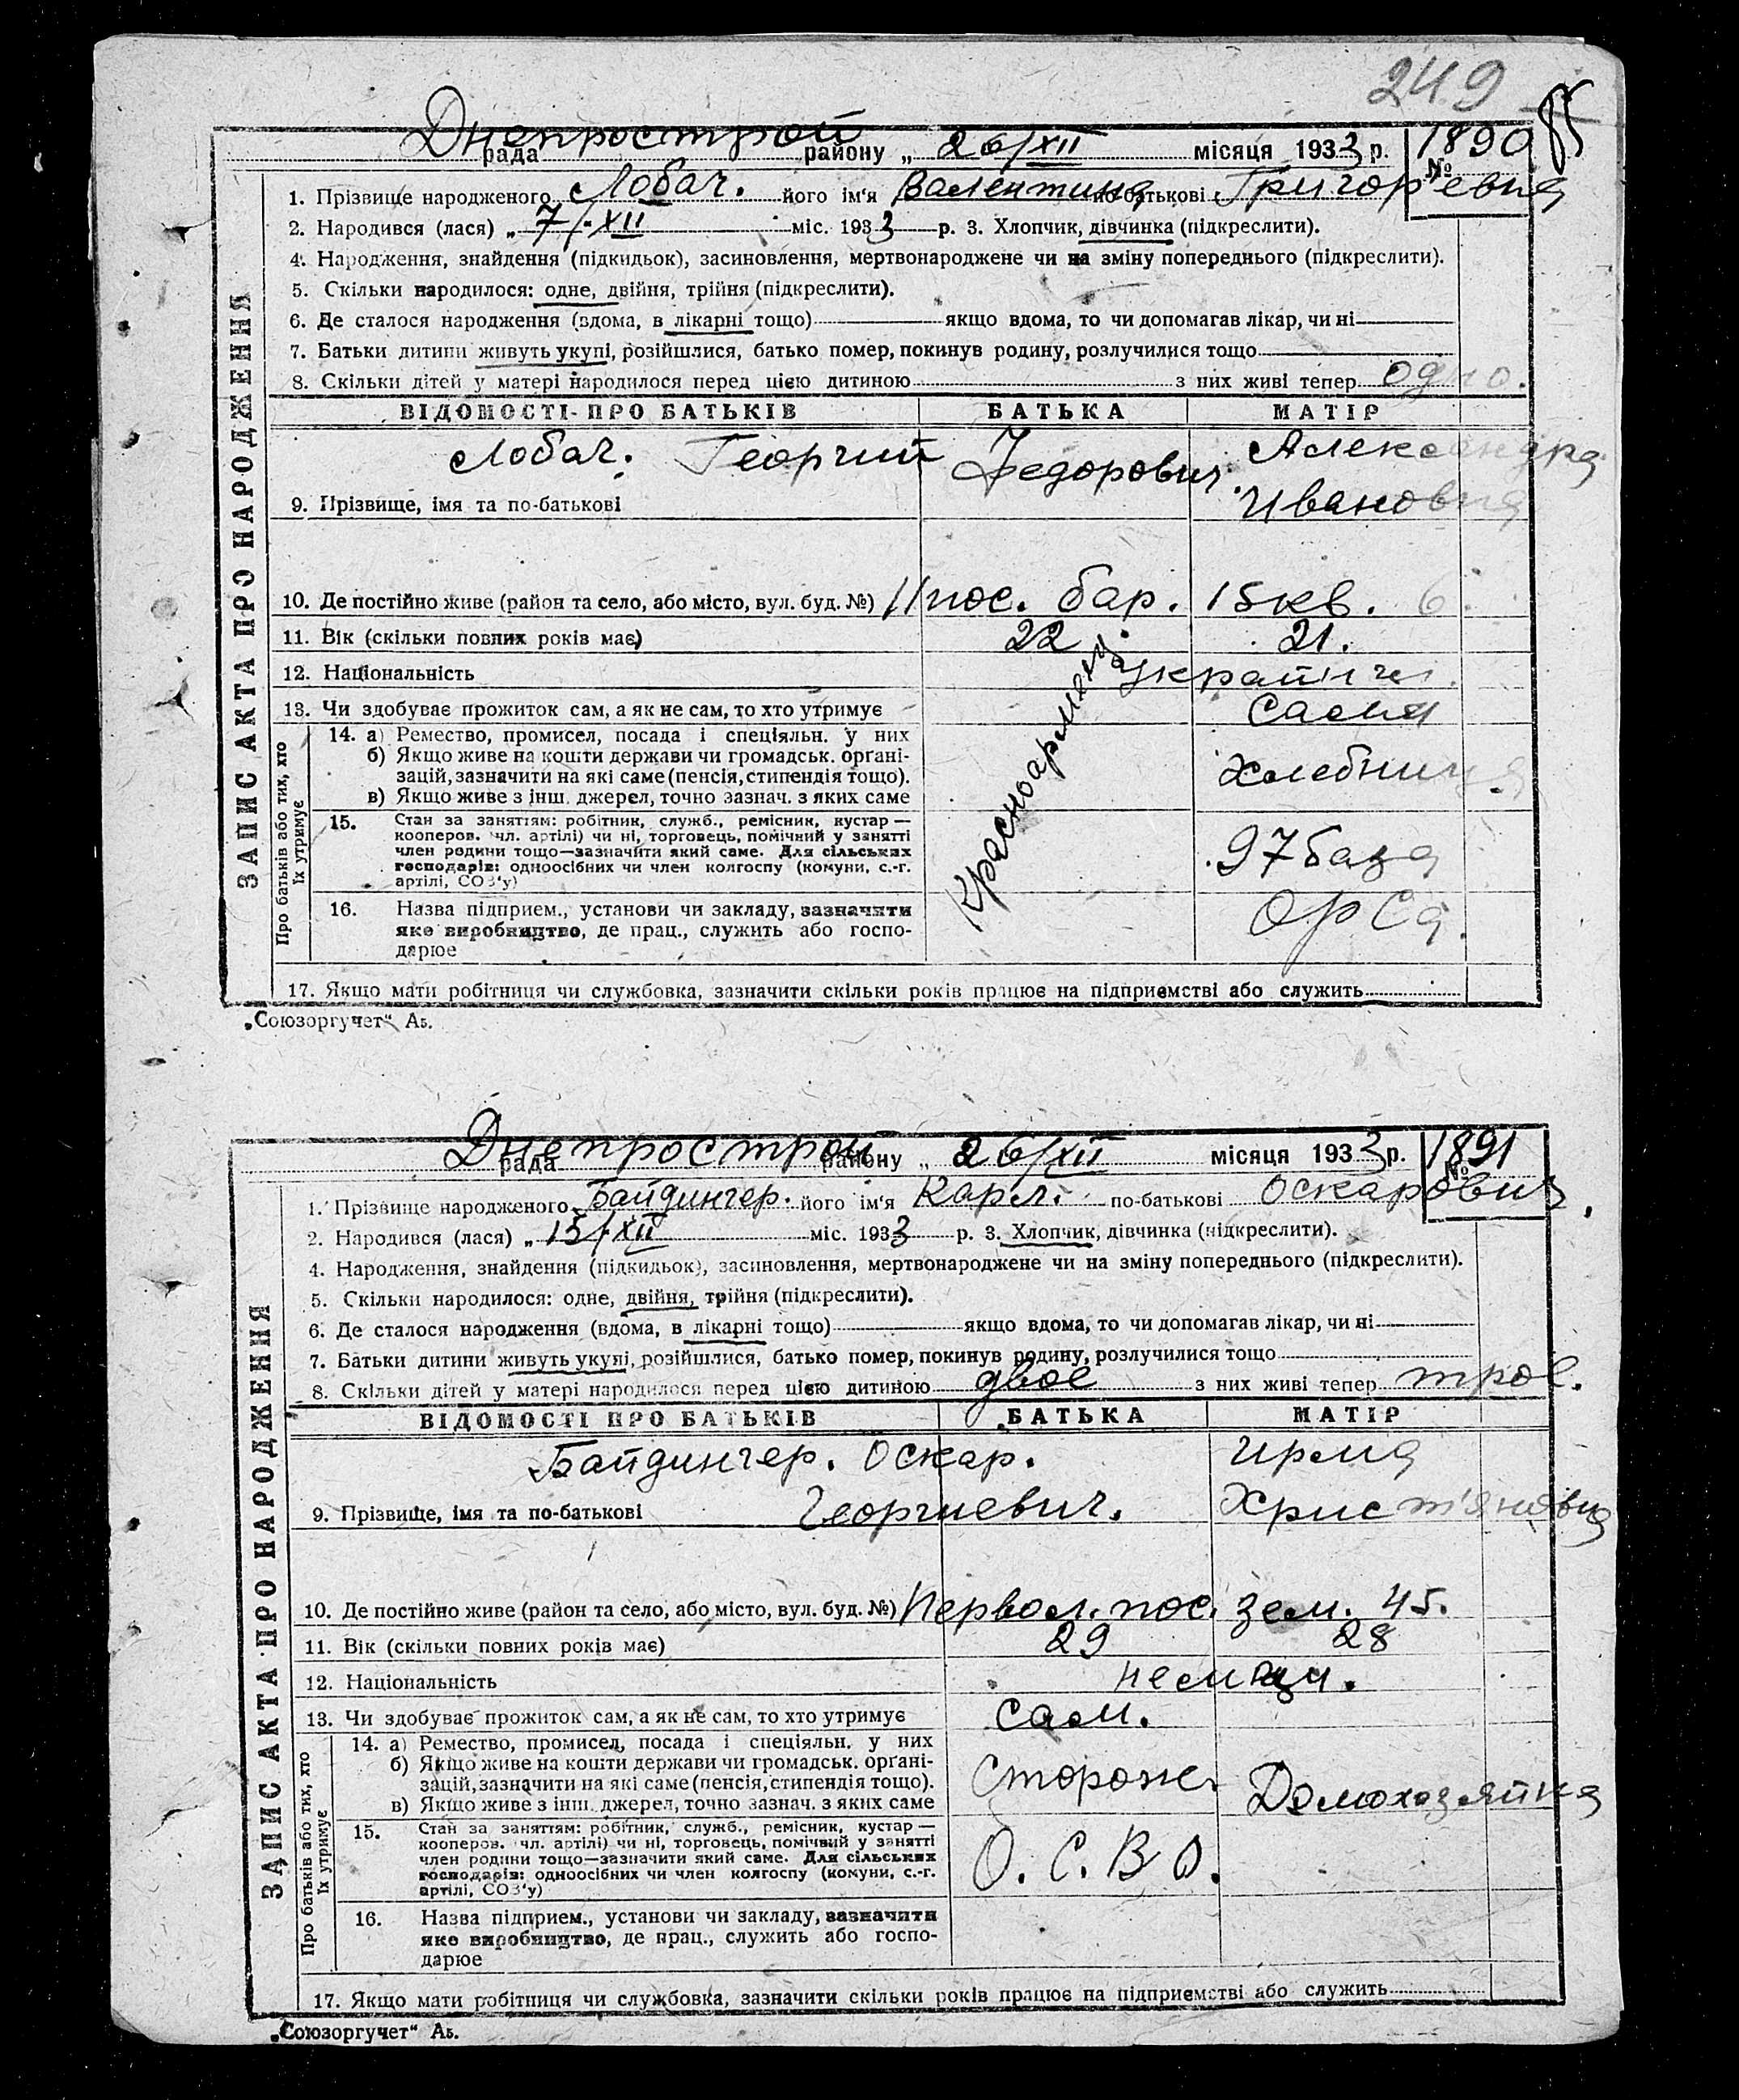 249
85
Днепрострой
рада району „ 26/XII місяця 1933 р. № 1890
1. Прізвище народженого Лобач. його ім'я Валентина по-батькові Григорьевна
2. Народився (лася) „ 7/XII міс. 1933 р. 3. Хлопчик, дівчинка (підкреслити).
4. Народження, знайдення (підкидьок), засиновлення, мертвонароджене чи на зміну попереднього (підкреслити).
5. Скільки народилося: одне, двійня, трійня (підкреслити).
6. Де сталося народження (вдома, в лікарні тощо) якщо вдома, то чи допомагав лікар, чи ні
7. Батьки дитини живуть укупі, розійшлися, батько помер, покинув родину, розлучилися тощо
8. Скільки дітей у матері народилося перед цією дитиною з них живі тепер одно.
ЗАПИС АКТА ПРО НАРОДЖЕННЯ
ВІДОМОСТІ ПРО БАТЬКІВ БАТЬКА МАТІР
Лобач. Георгий Федорович. Александра
9. Прізвище, імя та по-батькові Ивановна
10. Де постійно живе (район та село, або місто, вул. буд. №) 11 пос. бар. 15 кв. 6.
11. Вік (скільки повних років має) 22 21.
12. Національність украинцы.
13. Чи здобуває прожиток сам, а як не сам, то хто утримує Сама
Про батьків або тих, хто їх утримує
14. а) Ремество, промисел, посада і спеціяльн. у них
б) Якщо живе на кошти держави чи громадськ. орґані-
зацій, зазначити на які саме (пенсія, стипендія тощо).
в) Якщо живе з інш. джерел, точно зазнач. з яких саме
Красноармеец.
15. Стан за заняттям: робітник, служб., ремісник, кустар —
кооперов. чл. артілі) чи ні, торговець, помічний у занятті
член родини тощо—зазначити який саме. Для сільських
господарів: одноосібних чи член колгоспу (комуни, с.-г.
артілі, СОЗ'у)
97 база
16. Назва підприєм., установи чи закладу, зазначити
яке виробництво, де прац., служить або госпо-
дарює
Орса.
17. Якщо мати робітниця чи службовка, зазначити скільки років працює на підприємстві або служить
„Союзоргучет“ Аб.
Днепрострой
рада району „ 26/XII місяця 1933 р. № 1891
1. Прізвище народженого Байдингер. його ім'я Карл. по-батькові Оскарович.
2. Народився (лася) „ 15/XII міс. 1933 р. 3. Хлопчик, дівчинка (підкреслити).
4. Народження, знайдення (підкидьок), засиновлення, мертвонароджене чи на зміну попереднього (підкреслити).
5. Скільки народилося: одне, двійня, трійня (підкреслити).
6. Де сталося народження (вдома, в лікарні тощо) якщо вдома, то чи допомагав лікар, чи ні
7. Батьки дитини живуть укупі, розійшлися, батько помер, покинув родину, розлучилися тощо
8. Скільки дітей у матері народилося перед цією дитиною двое з них живі тепер трое.
ЗАПИС АКТА ПРО НАРОДЖЕННЯ
ВІДОМОСТІ ПРО БАТЬКІВ БАТЬКА МАТІР
Байдингер. Оскар. Ирма
9. Прізвище, імя та по-батькові Георгиевич. Христ'яновна
10. Де постійно живе (район та село, або місто, вул. буд. №) Первом. пос. зем. 45.
11. Вік (скільки повних років має) 29 28
12. Національність немцы.
13. Чи здобуває прожиток сам, а як не сам, то хто утримує сам.
Про батьків або тих, хто їх утримує
14. а) Ремество, промисел, посада і спеціяльн. у них
б) Якщо живе на кошти держави чи громадськ. орґані-
зацій, зазначити на які саме (пенсія, стипендія тощо).
в) Якщо живе з інш. джерел, точно зазнач. з яких саме
Сторож. Домохозяйка
15. Стан за заняттям: робітник, служб., ремісник, кустар —
кооперов. чл. артілі) чи ні, торговець, помічний у занятті
член родини тощо—зазначити який саме. Для сільських
господарів: одноосібних чи член колгоспу (комуни, с.-г.
артілі, СОЗ'у)
О. С. В О.
16. Назва підприєм., установи чи закладу, зазначити
яке виробництво, де прац., служить або госпо-
дарює
17. Якщо мати робітниця чи службовка, зазначити скільки років працює на підприємстві або служить
„Союзоргучет“ Аб.